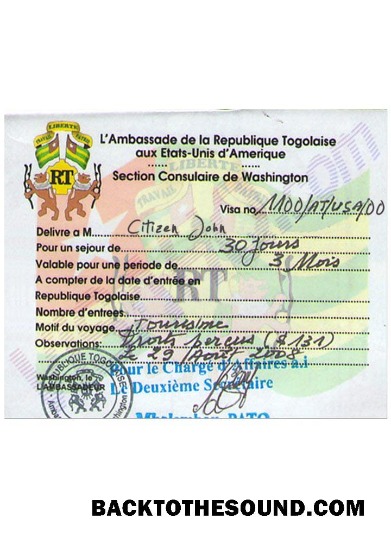 LIBERTE
TRAVAIL PATRIE
RT
L'Ambassade de la Republique Togolaise
aux Etats-Unis d'Amerique
Section Consulaire de Washington
Visa no. M00/AT/USA/00
Delivre a M... Citizen John
Pour un sejour de... 30 Jours
Valable pour une periode de... 3 Mois
A compter de la date d'entrée en
Republique Togolaise
Nombre d'entrees
Motif du voyage. Tourisme
Observations: Droits perçus (8131)
le 29 Août 2008
Pour le Chargé d'Affaires a.i
Le Deuxième Secrétaire
Washington, le
L'AMBASSADEUR
BACKTOTHESOUND.COM